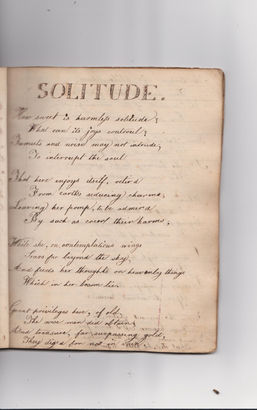 SOLITUDE.
How sweet is harmless solitude;
What can its joys controul;
Tumults and noise may not intrude,
To interrupt the soul
That here enjoys itself, retir'd
From earths seducing charms,
Leaving her pomp, to be admir'd
By such as court their harms;
While she, on contemplations wings
Soars far beyond the sky,
And feeds her thoughts on heavenly things
Which in her bosom lie.
Great privileges here, of old,
The wise men did obtain,
And treasure, far surpassing gold,
They dig'd for not in vain.